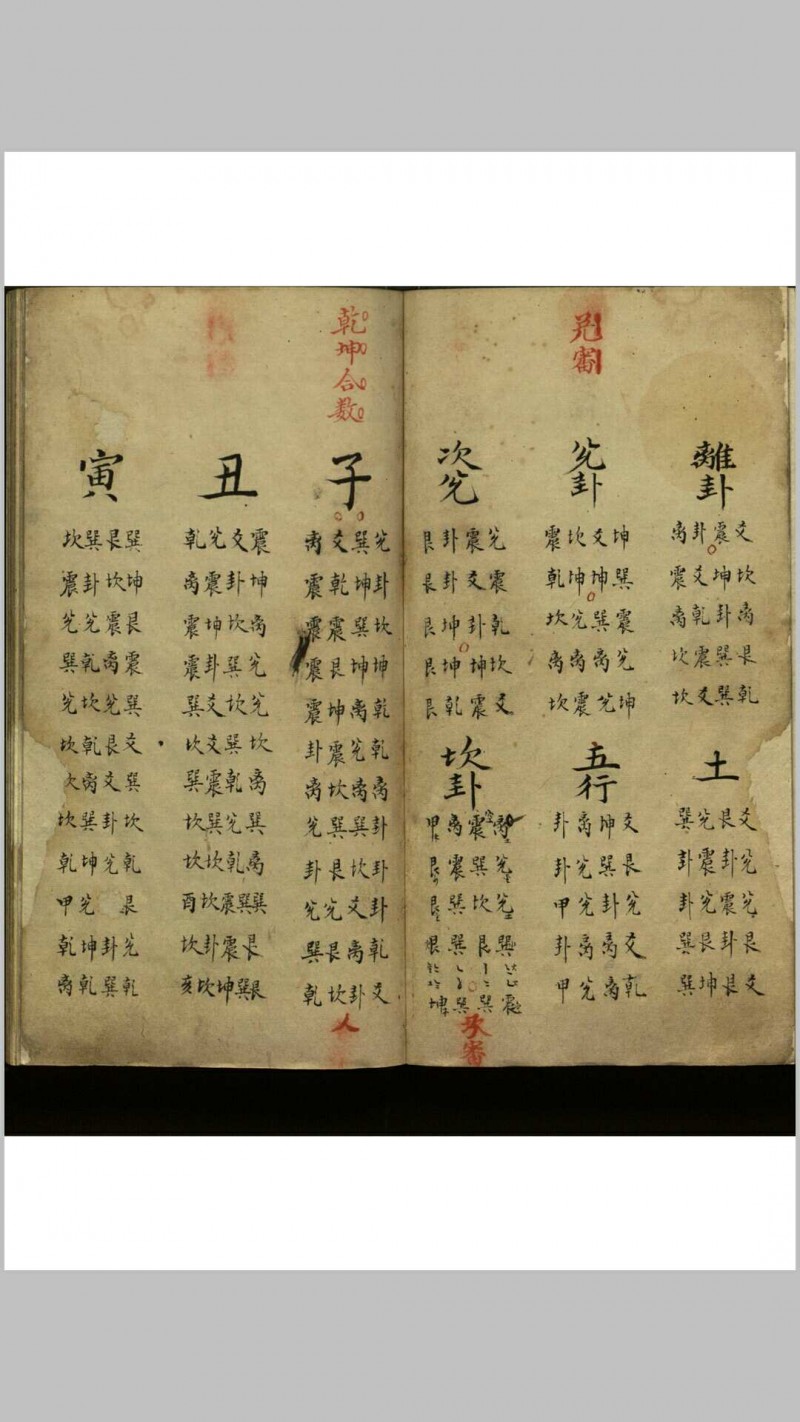 兌審
離卦
离卦震爻
震爻坤坎
离乾卦离
坎震巽艮
坎爻巽乾
土
巽兌艮爻
卦震卦兌
卦兌震兌
巽艮卦艮
巽坤艮爻
兌卦
震坎爻坤
乾坤坤巽
坎兌巽震
离离离兌
坎震兌坤
五行
卦离坤爻
卦兌巽艮
甲兌卦兌
卦离离爻
甲兌离乾
次兌
艮卦震兌
艮卦爻震
艮坤卦乾
艮坤坤坎
艮乾震爻
坎卦
甲离震
艮震巽兌
艮巽坎兌
艮巽艮巽
坤巽巽震
承審
乾坤合数
子
离爻巽兌
震乾坤卦
震震巽坎
震艮坤坤
震坤离乾
卦震兌乾
离坎离离
兌巽巽卦
卦艮坎卦
兌兌爻卦
巽艮离乾
乾坎卦爻
人
丑
乾兌爻震
离震卦坤
震坤坎离
震卦巽兌
巽爻坎兌
坎爻巽坎
巽震乾离
坎巽兌巽
坎坎乾离
酉坎震巽巽
坎卦震艮
亥坎坤巽艮
寅
坎巽艮巽
震卦坎坤
兌兌震艮
巽乾离震
兌坎兌巽
坎乾艮爻
坎离爻巽
坎巽卦坎
乾坤兌乾
甲兌 艮
乾坤卦兌
离乾巽乾